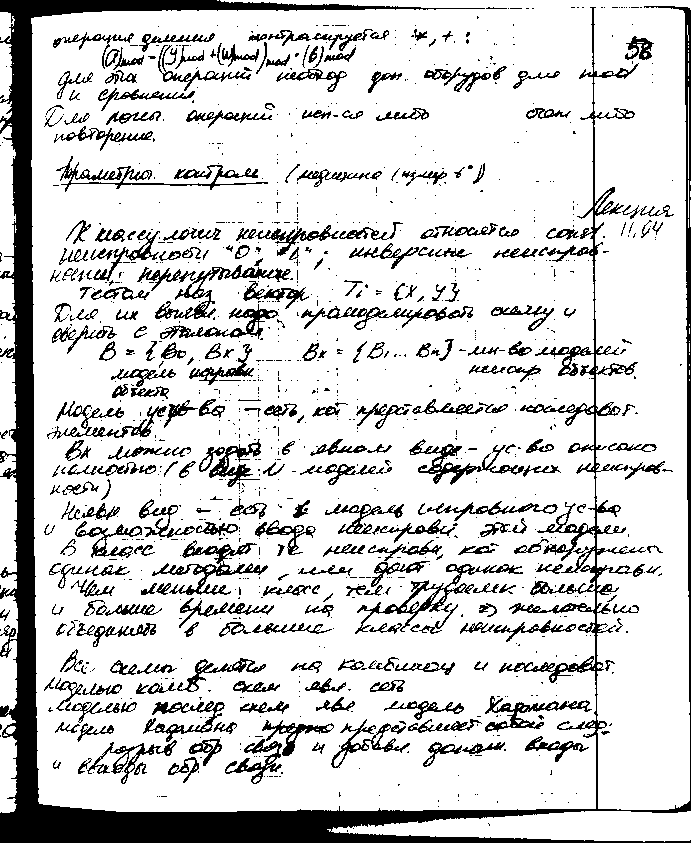 операция деления контрасируется *, + :
58
(A)mod = ((Y)mod + (W)mod)mod * (B)mod
для эта операций необход доп. оборудов для mod
и сравнения.
Для логич. операций исп-ся либо либо
повторение.
Параметры контроля
Лекция
11.04
К классу логич неисправностей относятся конст.
неисправности "0", "1"; инверсные неисправ-
ности; перепутывание.
Тестом наз вектор Ti = {X, Y}
Для их выявл. надо промоделировать схему и
сверить с эталоном
B = {B0, Bк} Bк = {B1 ... Bn} - мн-во моделей
модель исправн неиспр объектов.
объекта
Модель устр-ва - сеть, кот представляется последоват.
элементов
Bк можно задать в явном виде - ус-во описано
полностью (в виде N моделей содержащих неисправ-
ности)
Неявн вид - есть модель исправного ус-ва
и возможностью ввода неисправн. этой модели.
В класс входят те неисправн, кот обнаружены
одинак методами, или дают одинак неисправн.
Чем меньше класс, тем трудоемк больше,
и больше времени на проверку => желательно
объединять в большие классы неисправностей.
Все схемы делятся на комбинац и последоват.
Моделью комб. схем явл. сеть
Моделью послед схем явл модель Хафмана.
модель Хафмана представляет собой след:
разрыв обр связи и добавл. дополн. входы
и выходы обр. связи.